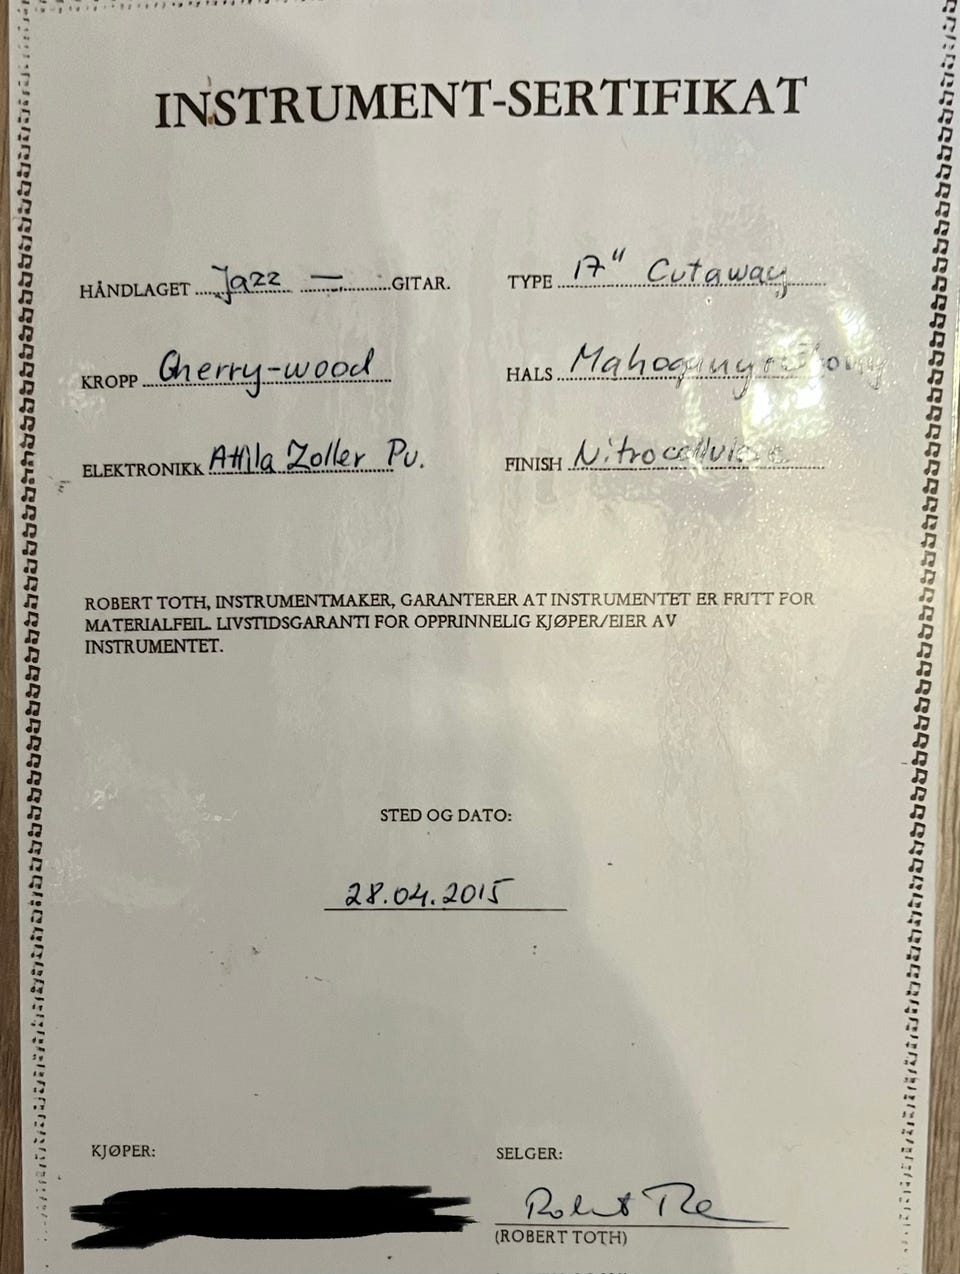 INSTRUMENT-SERTIFIKAT
HÅNDLAGET Jazz — GITAR. TYPE 17" Cutaway
KROPP Cherry-wood HALS Mahogany
ELEKTRONIKK Attila Zoller Pu. FINISH
ROBERT TOTH, INSTRUMENTMAKER, GARANTERER AT INSTRUMENTET ER FRITT FOR
MATERIALFEIL. LIVSTIDSGARANTI FOR OPPRINNELIG KJØPER/EIER AV
INSTRUMENTET.
STED OG DATO:
28.04.2015
KJØPER: SELGER:
Robert
(ROBERT TOTH)